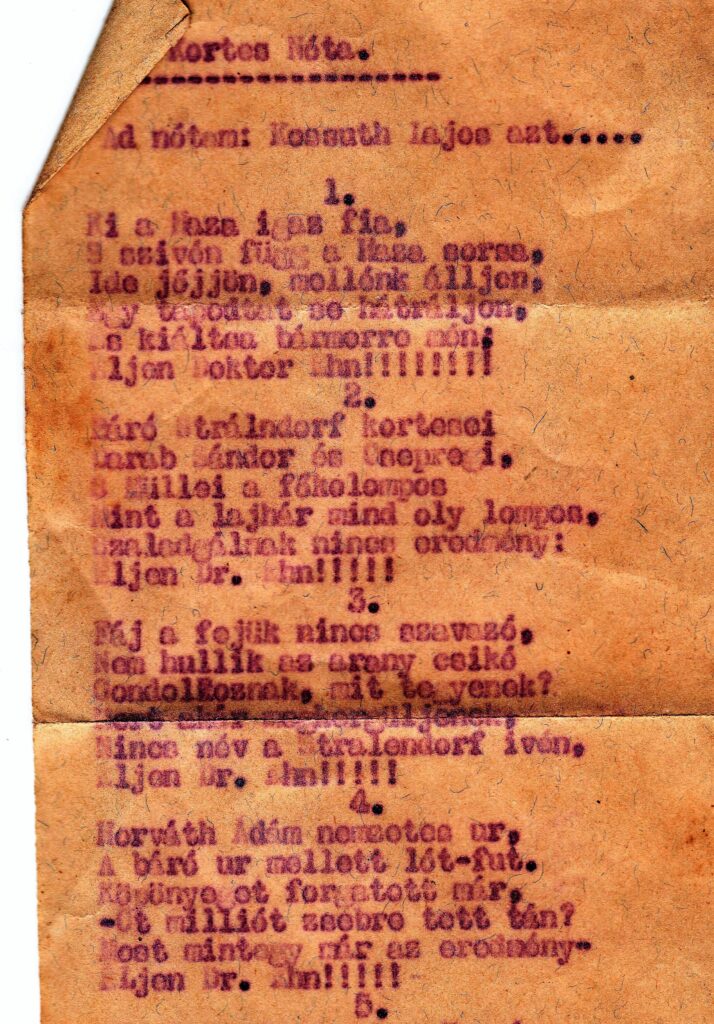 Kortes Nóta.
Ad nótam: Kossuth Lajos azt.....
1.
Ki a Haza igaz fia,
S szivén függ a Haza sorsa,
Ide jőjjön, mellénk álljen,
Egy tapodtat se hátráljon,
És kiáltsa bármerre mén;
Éljen Doktor Ehn!!!!!!!!
2.
Báró Strálndorf kortesei
Darab Sándor és Csepregi,
S Millei a főkolompos
Mint a lajhár mind oly lompos,
Szaladgálnak nincs eredmény:
Éljen Dr. Ehn!!!!!
3.
Fáj a fejük nincs szavazó,
Nem hullik az arany csikó
Gondolkoznak, mit tegyenek?
Mert akár megkergüljenek,
Nincs név a Stralendorf ivén,
Éljen Dr. Ehn!!!!!
4.
Horváth Ádám nemzetes ur,
A báró ur mellett lót-fut.
Köpönyeget forgatott már,
-Öt milliót zsebre tett tán?
Most mintegy már az eredmény-
Éljen Dr. Ehn!!!!!
5.